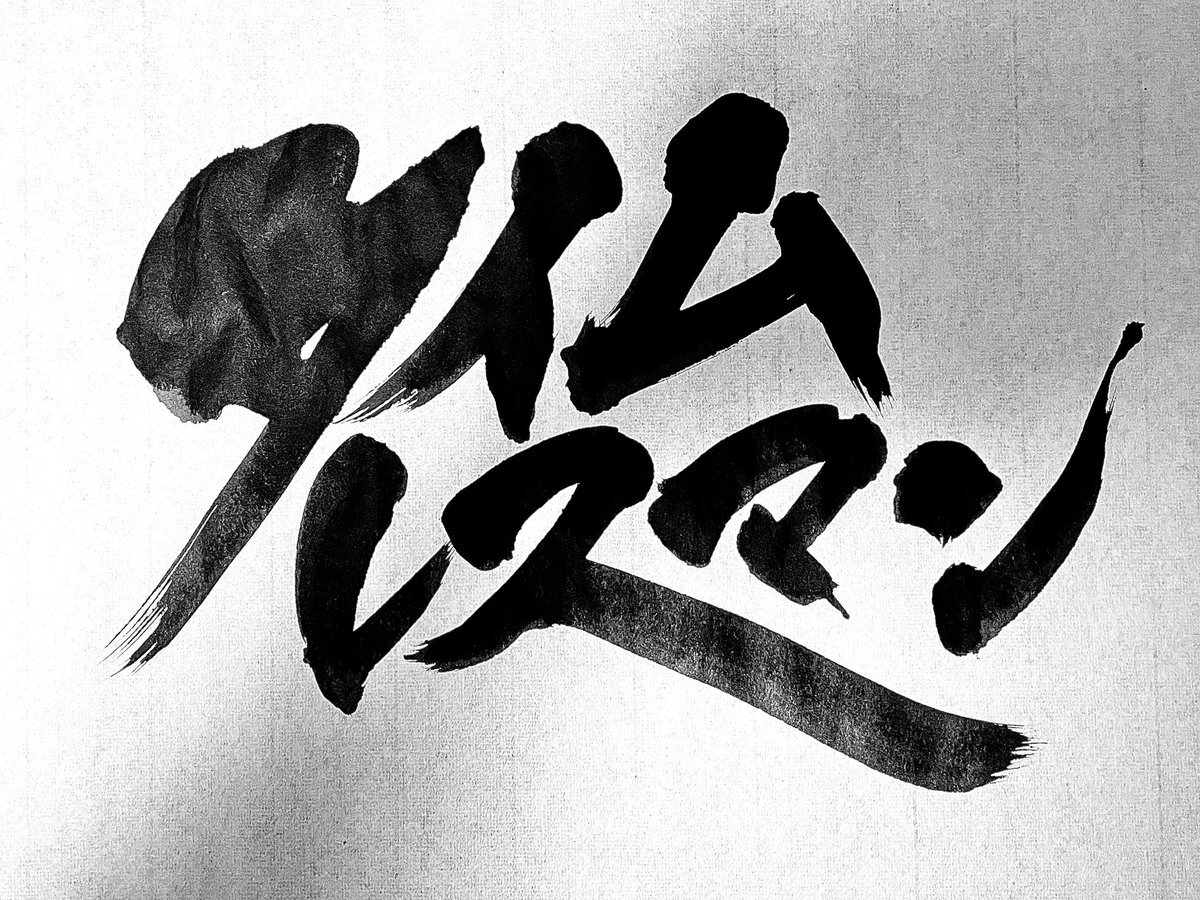 タイム
レスマン